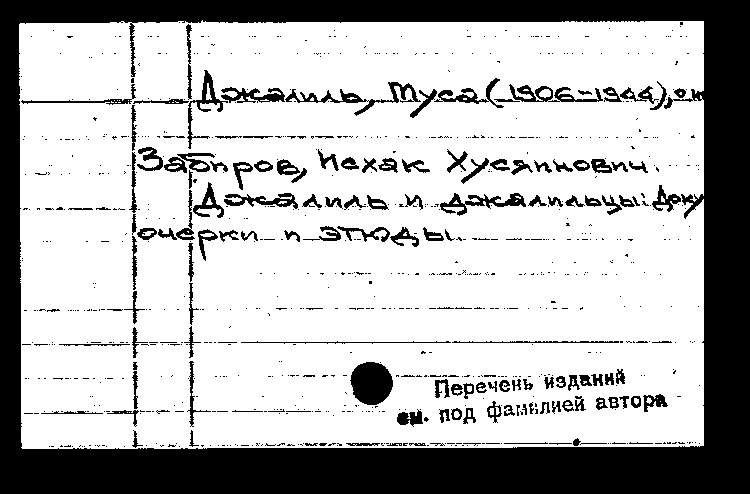 Джалиль, Муса (1906-1944), о к
Забиров, Исхак Хусяинович.
Джалиль и джалильцы: Доку
очерки и этюды.
Перечень изданий
см. под фамилией автора